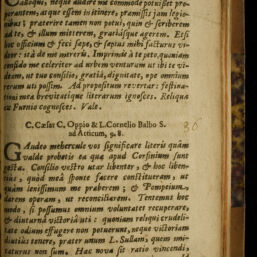 alloqui, neque audire me commode potuisset pro-
perantem, atque essem in itinere, præmissis jam legio-
nibus; præterire tamen non potui, quin & scriberem
ad te, & illum mitterem, gratiásque agerem. Etsi
hoc officium & feci sæpe, & sæpius mihi facturus vi-
deor: ità de me mereris. Imprimis à te peto, quoniam
confido me celeriter ad urbem venturum ut ibi te vi-
deam, ut tuo consilio, gratiâ, dignitate, ope omnium
rerum uti possim. Ad propositum revertar: festina-
tioni meæ brevitatique literarum ignosces. Reliqua
ex Furnio cognosces. Vale.
C. Cæsar C. Oppio & L. Cornelio Balbo S.
ad Atticum, 9. 8.
GAudeo mehercule vos significare literis quàm
valde probetis ea quæ apud Corfinium sunt
gesta. Consilio vestro utar libenter, & hoc liben-
tiùs, quòd meâ sponte facere constitueram, ut
quàm lenissimum me præberem; & Pompeium
darem operam, ut reconciliarem. Tentemus hoc
modo, si possumus omnium voluntates recuperare,
& diuturnâ victoriâ uti: quoniam reliqui crudeli-
tate odium effugere non potuerunt, neque victoriam
diutius tenere, præter unum L. Sullam, quem imi-
taturus non sum. Hæc nova sit ratio vincendi,